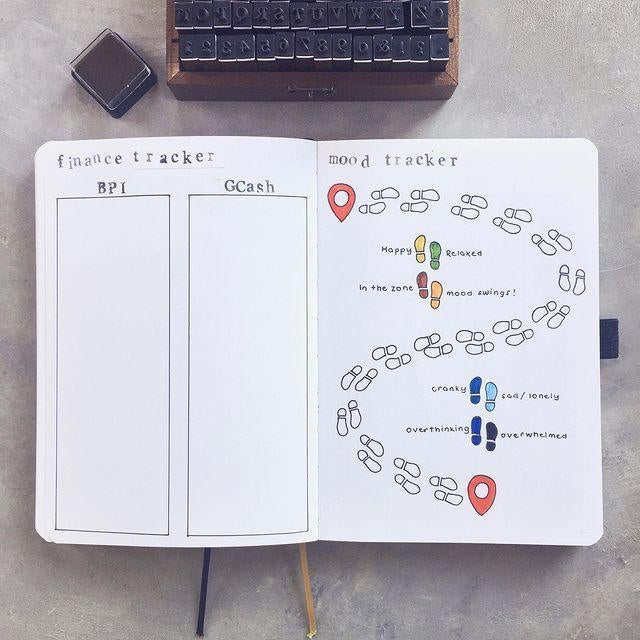 finance tracker
BPI
GCash
mood tracker
Happy
Relaxed
In the zone
mood swings!
cranky
sad/lonely
overthinking
overwhelmed